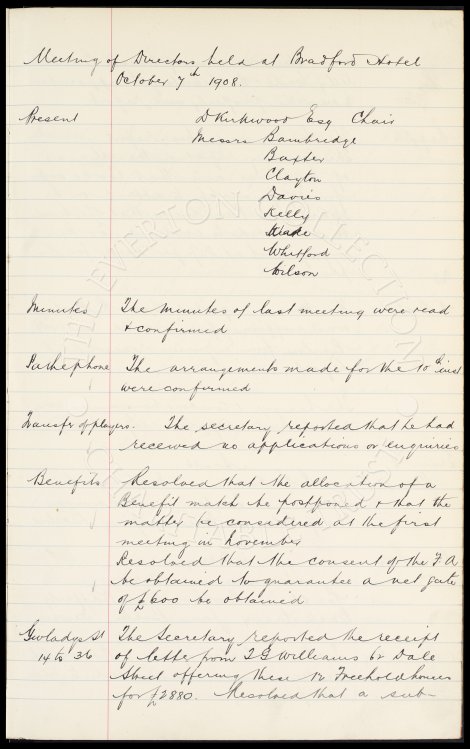 Meeting of Directors held at Bradford Hotel
October 7th 1908.
Present D Kirkwood Esq Chair
Messrs Bainbridge
Baxter
Clayton
Davies
Kelly
Wade
Whitford
Wilson
Minutes The minutes of last meeting were read
& confirmed
Pathephone The arrangements made for the 10th inst
were confirmed
Transfr of players. The secretary reported that he had
received no applications or enquiries
Benefits Resolved that the allocation of a
Benefit match be postponed & that the
matter be considered at the first
meeting in November
Resolved that the consent of the F A
be obtained to guarantee a net gate
of £600 be obtained
Gwladys St The Secretary reported the receipt
14 to 36 of letter from T G Williams 62 Dale
Street offering these 12 Freehold houses
for £2880. Resolved that a sub-
THE EVERTON COLLECTION